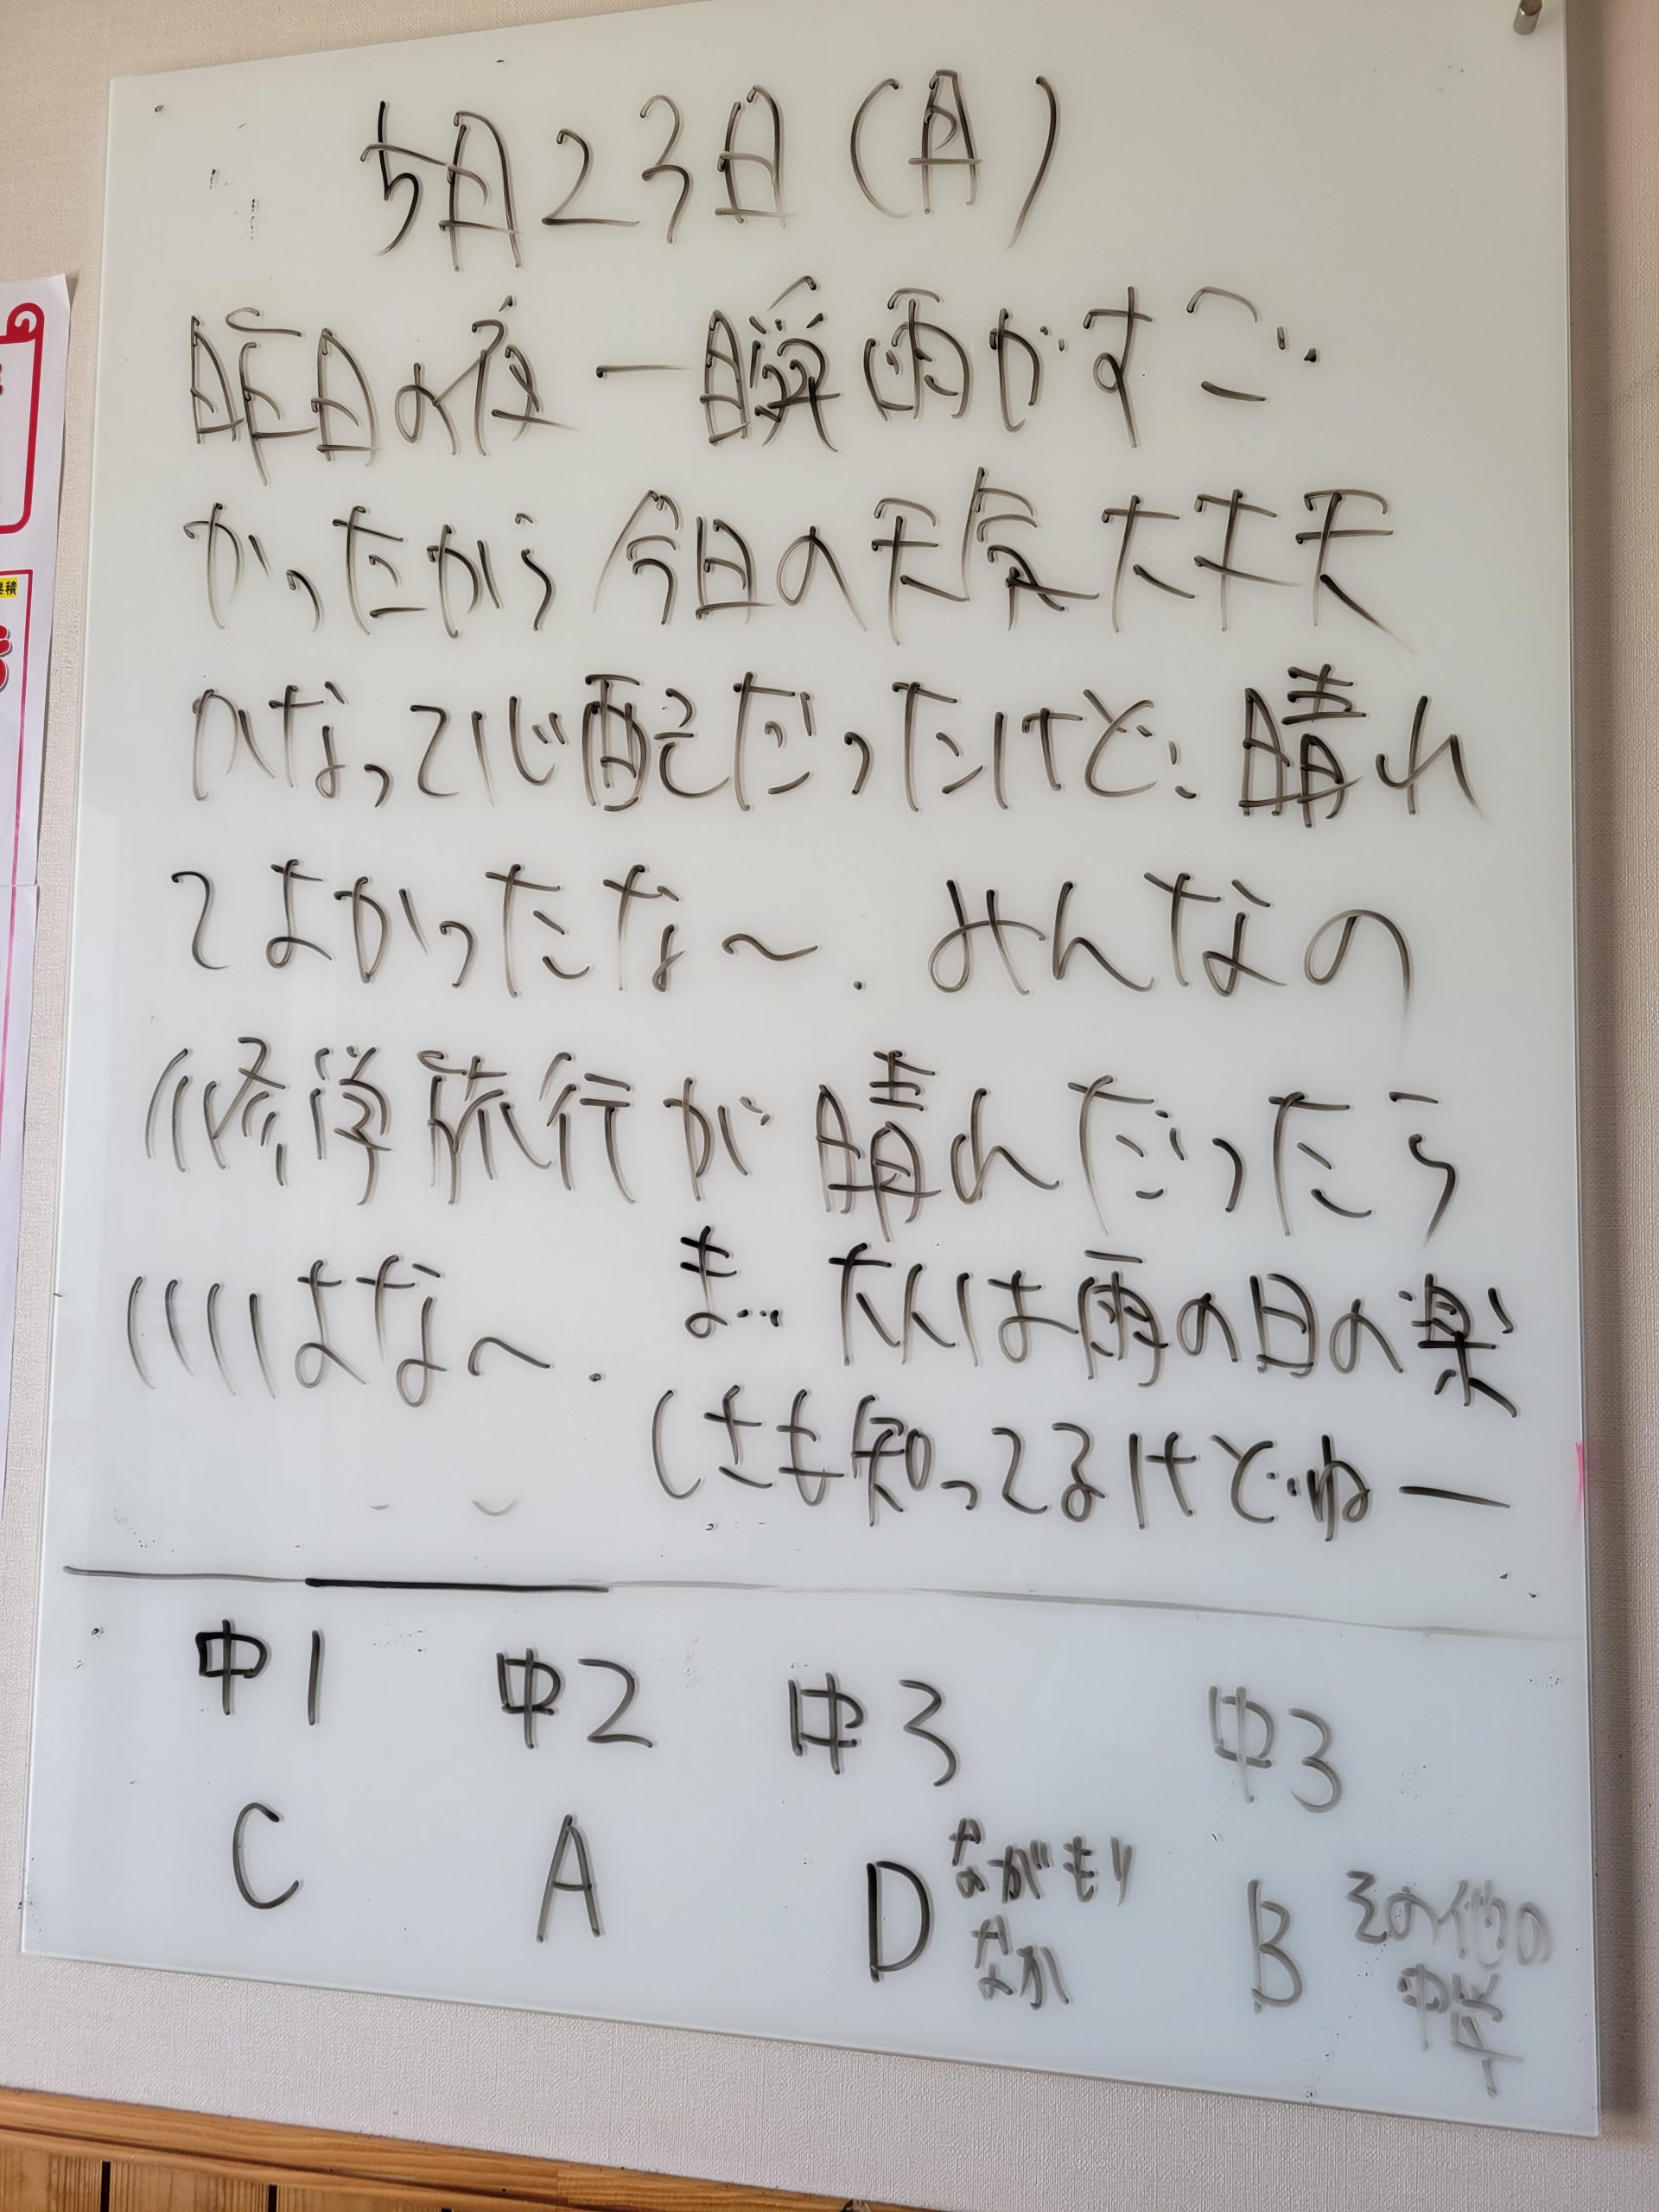 5月23日(月)
昨日の夜一瞬雨がすご
かったから今日の天気大丈夫
かなって心配だったけど、晴れ
てよかったな〜. みんなの
修学旅行が晴れだったら
いいよな〜.
ま… たんは雨の日の楽
しさも知ってるけどねー
中1 中2 中3 中3
C A D ながもり なか B その他の中学
果積